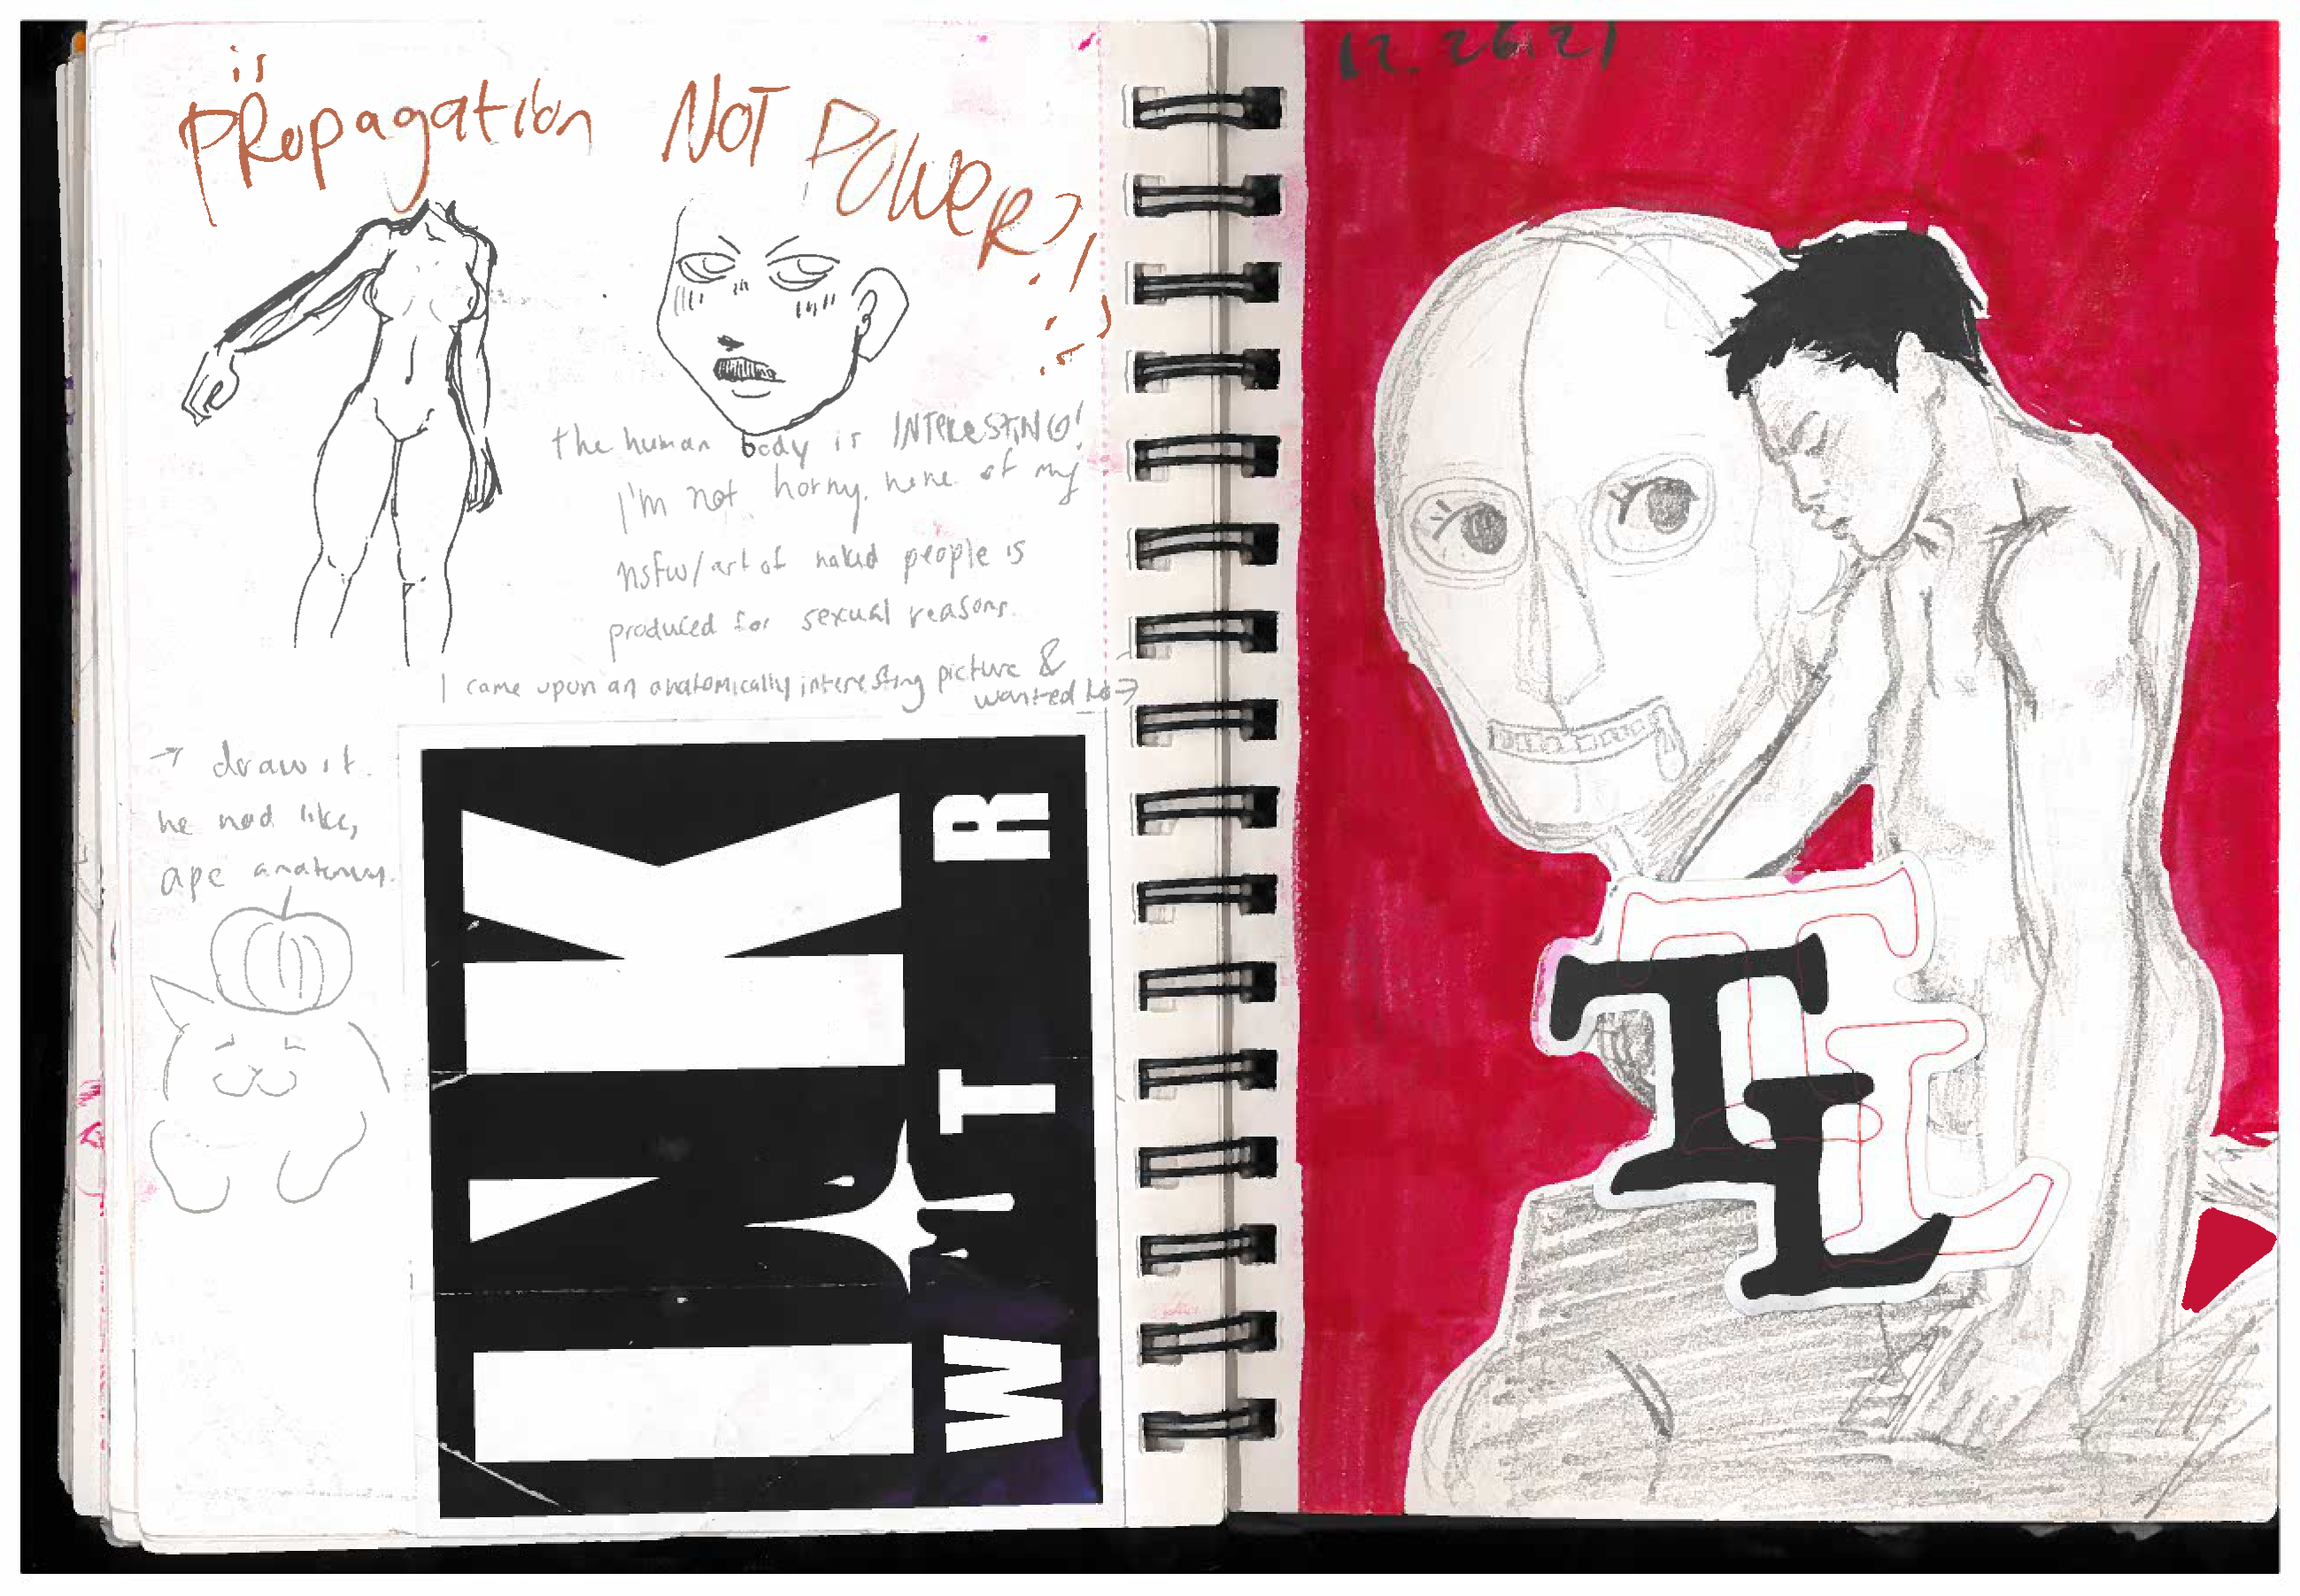 is
PROpagation NOT POWER?!
the human body is INTERESTING!
I'm not horny. none of my
nsfw/art of naked people is
produced for sexual reasons.
I came upon an anatomically interesting picture &
wanted to →
→ draw it.
he had like,
ape anatomy.
INK
WTR
12.26.21
TL
TL